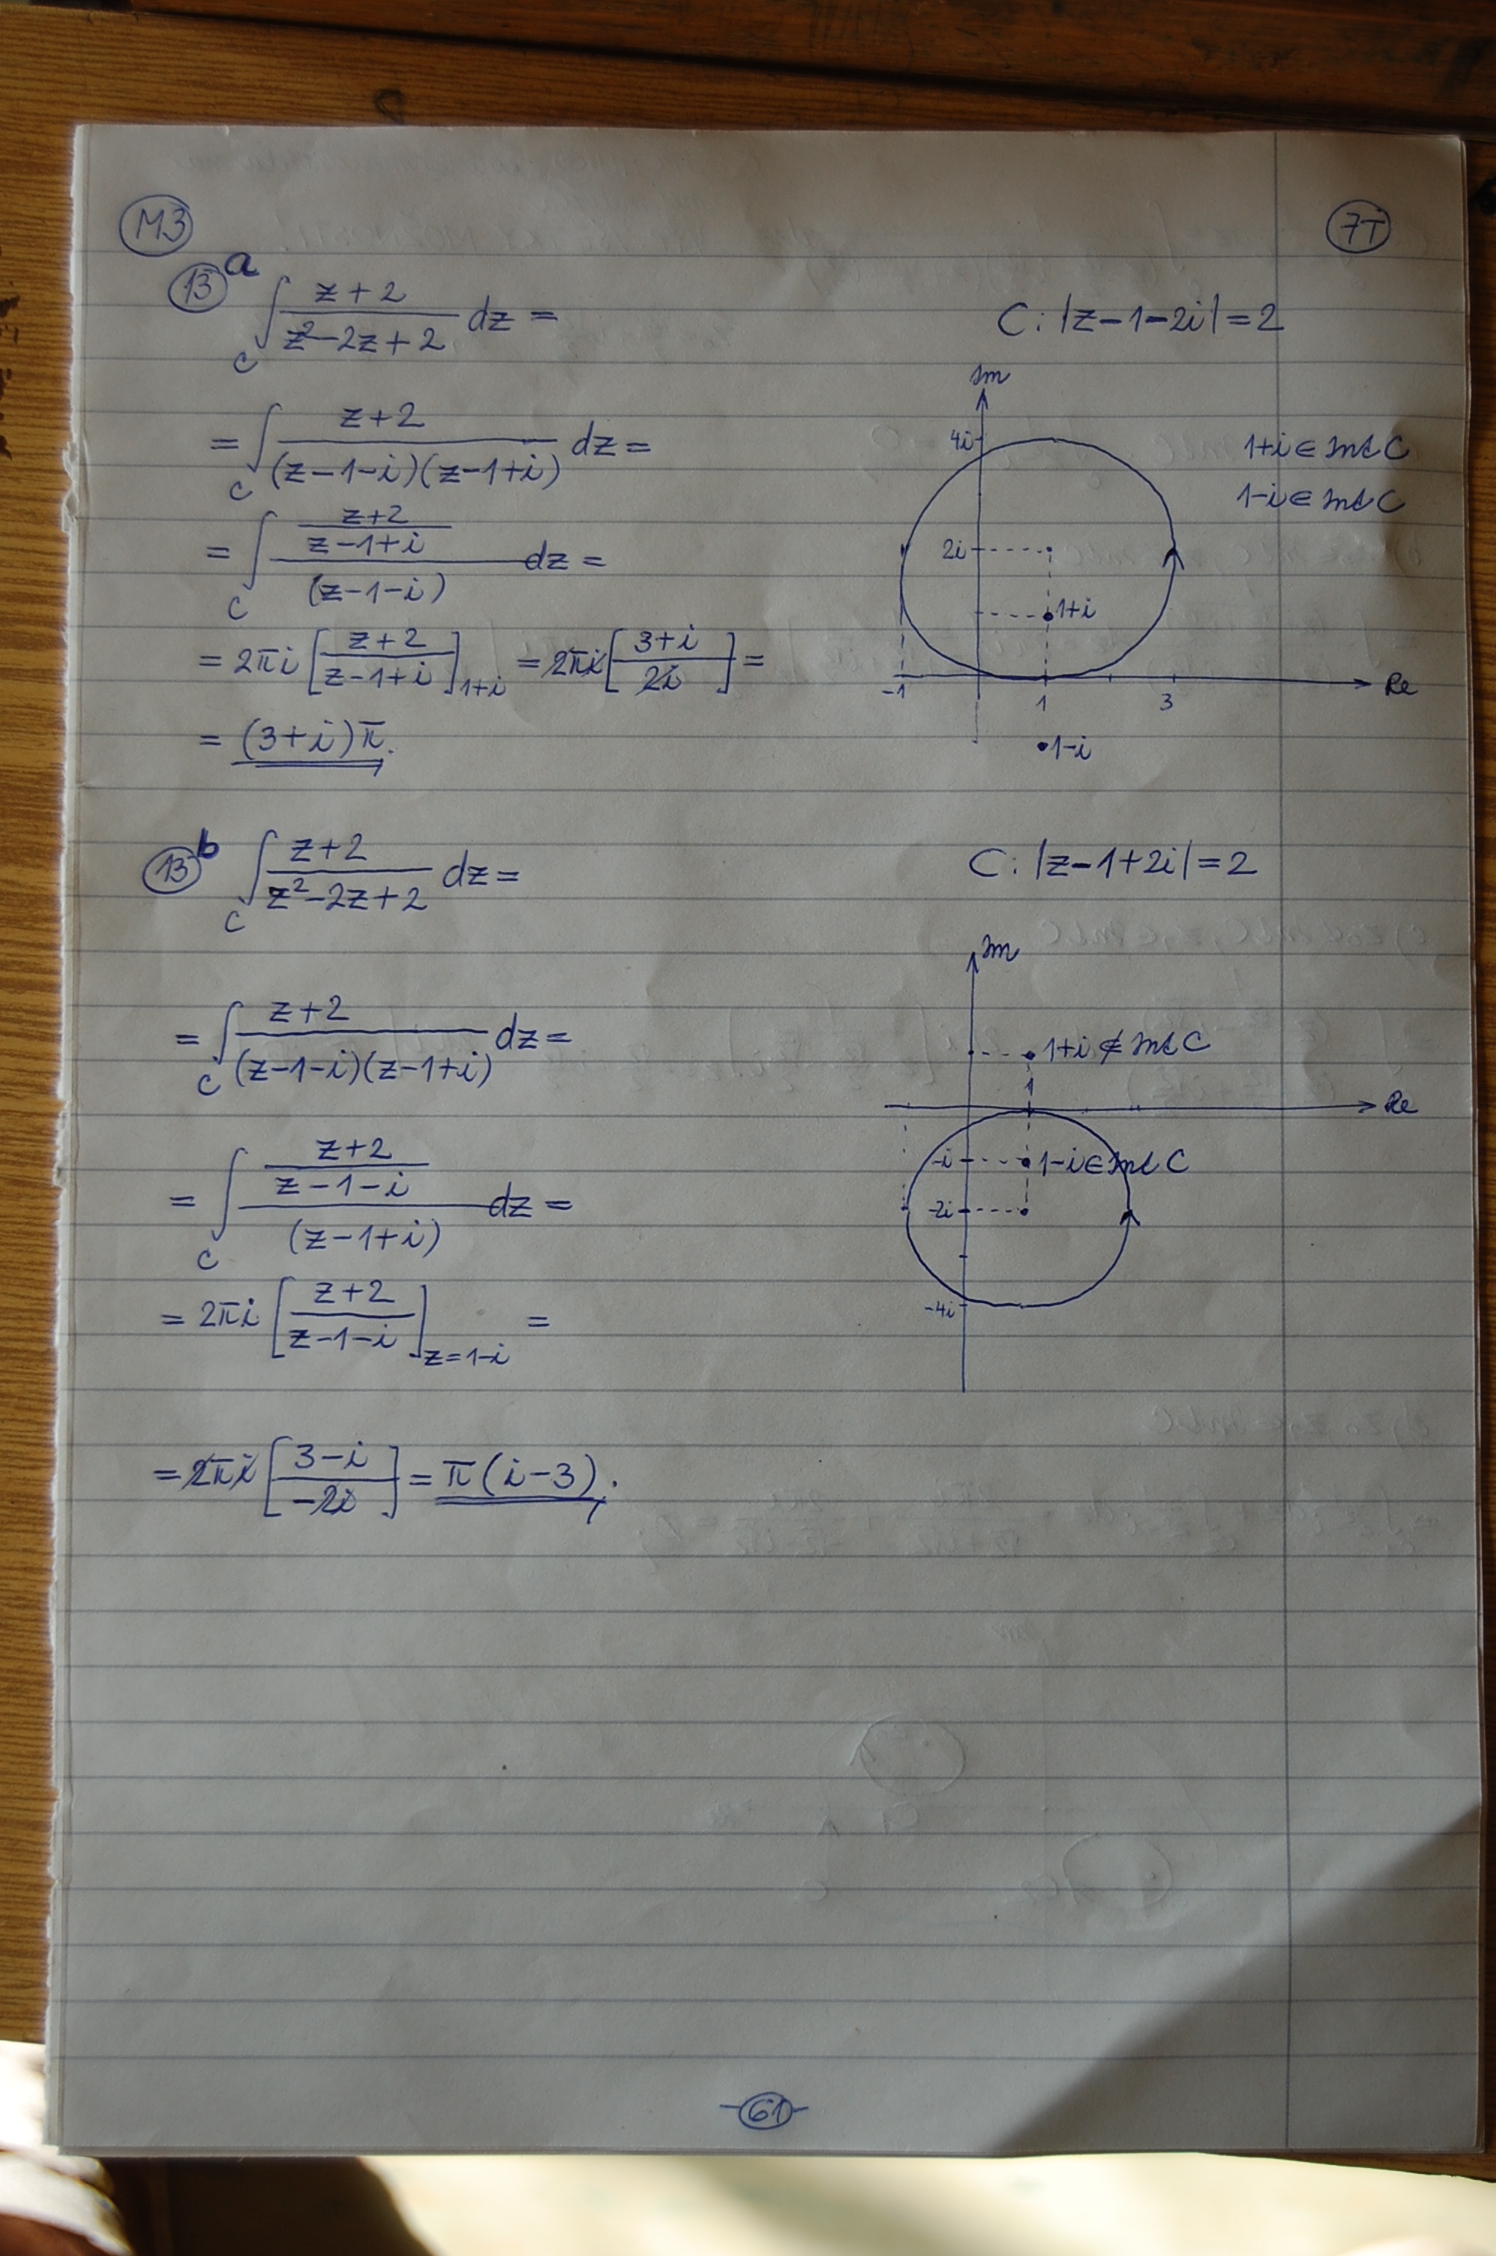 M3
7T
13 a ∫_C (z+2)/(z²-2z+2) dz =
C: |z-1-2i|=2
= ∫_C (z+2)/((z-1-i)(z-1+i)) dz =
= ∫_C ((z+2)/(z-1+i))/(z-1-i) dz =
= 2πi [(z+2)/(z-1+i)]_{1+i} = 2πi [(3+i)/(2i)] =
= (3+i)π.
Im
4i
1+i ∈ int C
1-i ∈ int C
2i
1+i
-1
1
3
Re
1-i
13 b ∫_C (z+2)/(z²-2z+2) dz =
C: |z-1+2i|=2
= ∫_C (z+2)/((z-1-i)(z-1+i)) dz =
= ∫_C ((z+2)/(z-1-i))/(z-1+i) dz =
= 2πi [(z+2)/(z-1-i)]_{z=1-i} =
= 2πi [(3-i)/(-2i)] = π(i-3).
Im
1+i ∉ int C
1
Re
-i
1-i ∈ int C
-2i
-4i
-61-